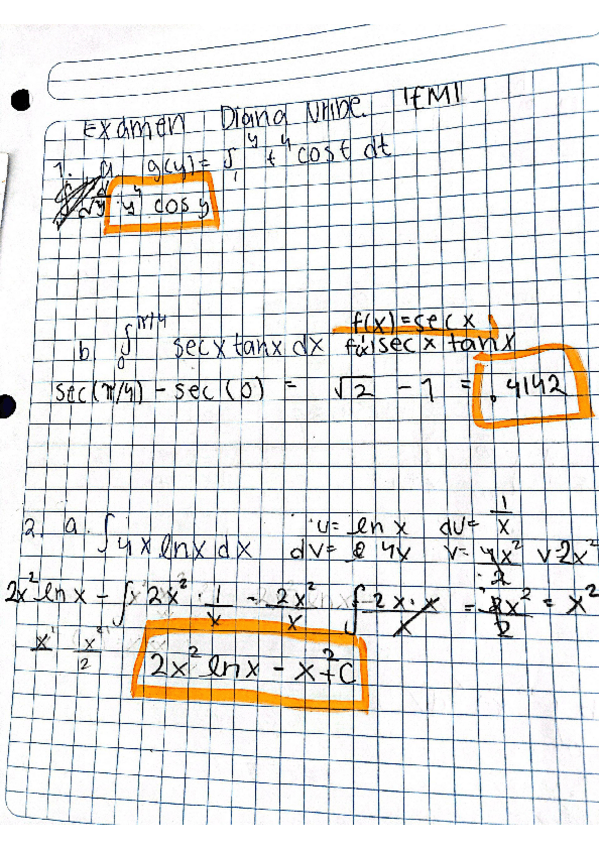 Examen Diana Uribe 1FM1
1. a. g(y) = ∫₁^y t⁴ cos t dt
y⁴ cos y
b ∫₀^π/4 sec x tan x dx f(x) = sec x
f'(x) sec x tan x
sec(π/4) - sec(0) = √2 - 1 = .4142
2. a. ∫ 4x ln x dx u = ln x du = 1/x
dv = 4x v = 4x²/2 v = 2x²
2x² ln x - ∫ 2x² · 1/x - 2x²/x ∫ 2x·x/x = 2x²/2 = x²
x² x²/2
2x² ln x - x² + C